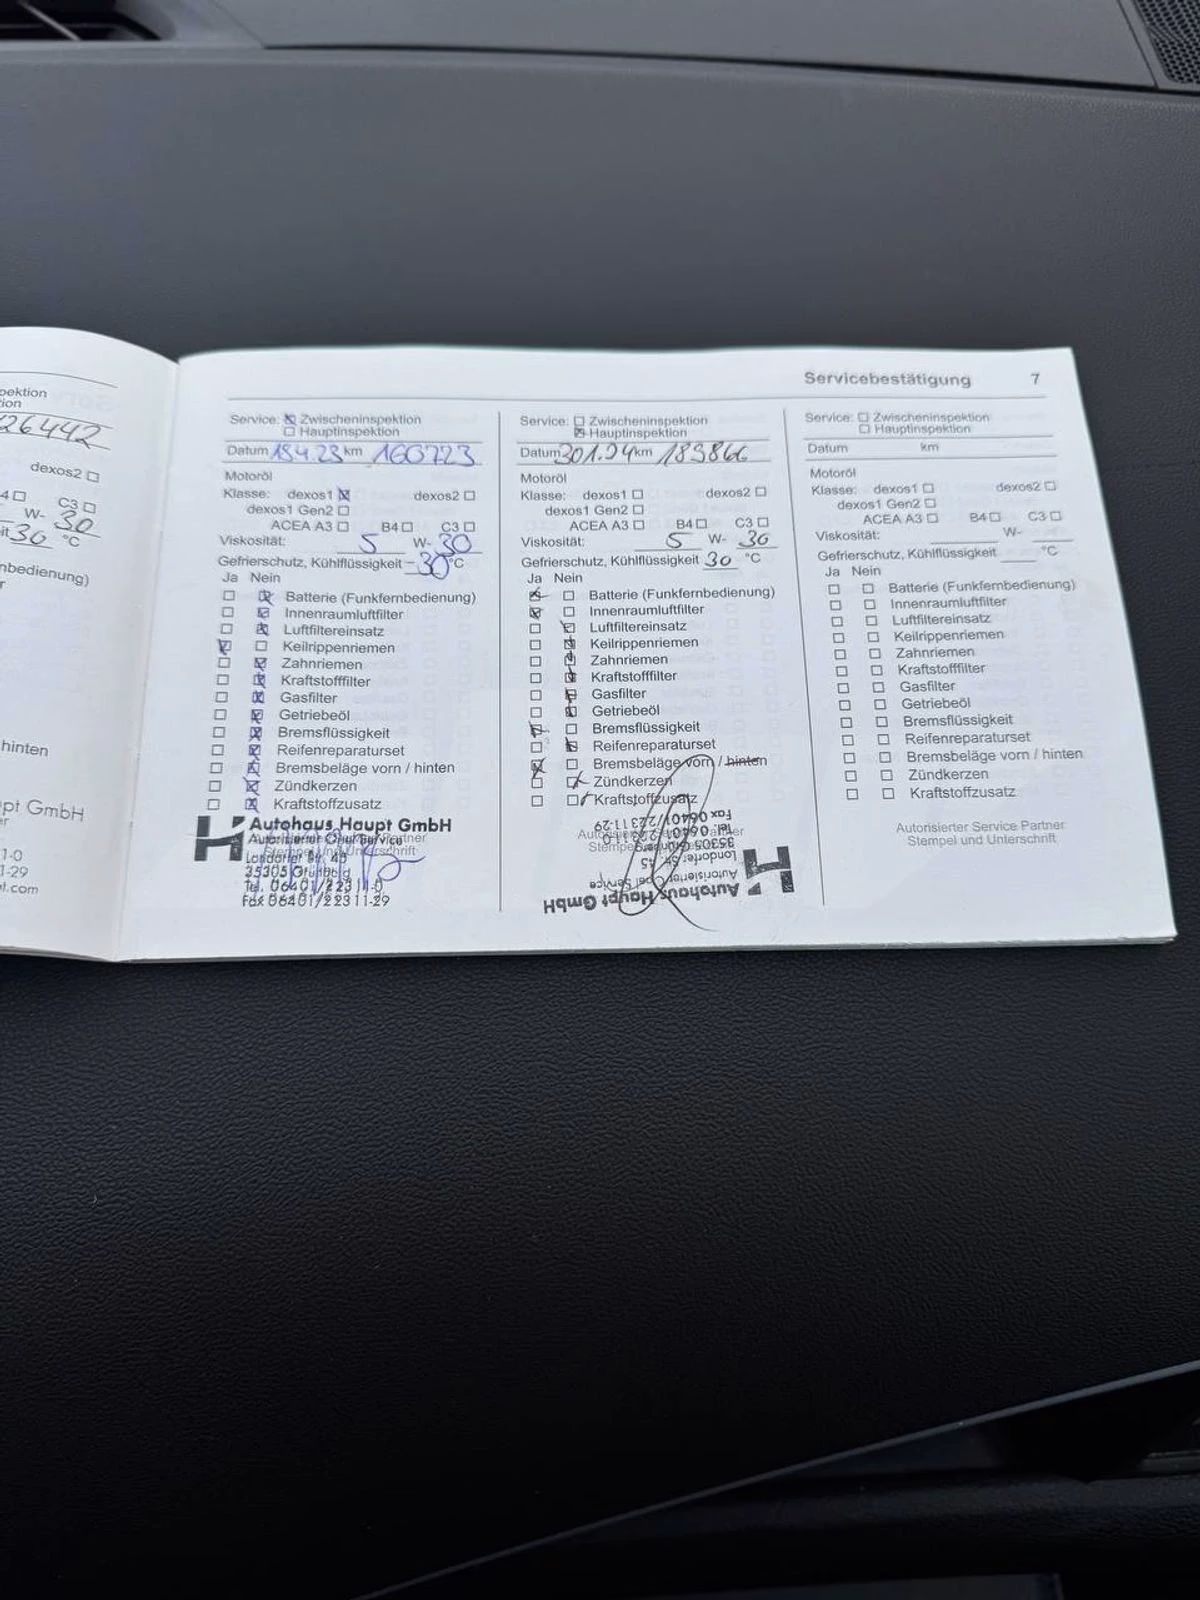 pektion
ion
26442
dexos2
4 C3
W- 30
it 30 °C
nbedienung)
r
hinten
pt GmbH
er
1-0
1-29
l.com
Servicebestätigung 7
Service: Zwischeninspektion
Hauptinspektion
Datum 18.4.23 km 160723
Motoröl
Klasse: dexos1 dexos2
dexos1 Gen2
ACEA A3 B4 C3
Viskosität: 5 W- 30
Gefrierschutz, Kühlflüssigkeit -30 °C
Ja Nein
Batterie (Funkfernbedienung)
Innenraumluftfilter
Luftfiltereinsatz
Keilrippenriemen
Zahnriemen
Kraftstofffilter
Gasfilter
Getriebeöl
Bremsflüssigkeit
Reifenreparaturset
Bremsbeläge vorn / hinten
Zündkerzen
Kraftstoffzusatz
Autohaus Haupt GmbH
Autorisierter Opel Service
Autorisierter Service Partner
Stempel und Unterschrift
Londorfer Str. 45
35305 Grünberg
Tel. 06401/22311-0
Fax 06401/22311-29
Service: Zwischeninspektion
Hauptinspektion
Datum 301.24 km 183866
Motoröl
Klasse: dexos1 dexos2
dexos1 Gen2
ACEA A3 B4 C3
Viskosität: 5 W- 30
Gefrierschutz, Kühlflüssigkeit 30 °C
Ja Nein
Batterie (Funkfernbedienung)
Innenraumluftfilter
Luftfiltereinsatz
Keilrippenriemen
Zahnriemen
Kraftstofffilter
Gasfilter
Getriebeöl
Bremsflüssigkeit
Reifenreparaturset
Bremsbeläge vorn / hinten
Zündkerzen
Kraftstoffzusatz
Autorisierter Service Partner
Stempel und Unterschrift
Autohaus Haupt GmbH
Autorisierter Opel Service
Londorfer Str. 45
35305 Grünberg
Tel. 06401/22311-0
Fax 06401/22311-29
Service: Zwischeninspektion
Hauptinspektion
Datum km
Motoröl
Klasse: dexos1 dexos2
dexos1 Gen2
ACEA A3 B4 C3
Viskosität: W-
Gefrierschutz, Kühlflüssigkeit °C
Ja Nein
Batterie (Funkfernbedienung)
Innenraumluftfilter
Luftfiltereinsatz
Keilrippenriemen
Zahnriemen
Kraftstofffilter
Gasfilter
Getriebeöl
Bremsflüssigkeit
Reifenreparaturset
Bremsbeläge vorn / hinten
Zündkerzen
Kraftstoffzusatz
Autorisierter Service Partner
Stempel und Unterschrift